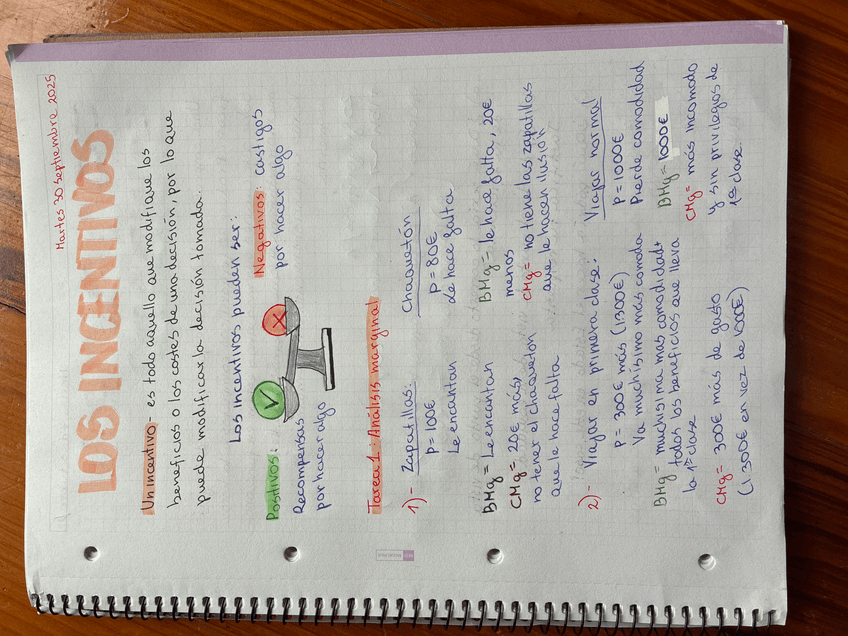 Martes 30 septiembre 2025
LOS INCENTIVOS
Un incentivo - es todo aquello que modifique los
beneficios o los costes de una decisión, por lo que
puede modificar la decisión tomada.
Los incentivos pueden ser:
Positivos:
Recompensas
por hacer algo
Negativos: castigos
por hacer algo
Tarea 1: Análisis marginal
1)- Zapatillas:
P = 100€
Le encantan
BMg = Le encantan
CMg = 20€ más,
no tener el chaqueton
que le hace falta
Chaquetón
P = 80€
Le hace falta
BMg = le hace falta, 20€
menos
CMg = no tiene las zapatillas
que le hacen ilusión
2)- Viajar en primera clase:
P = 300€ más (1300€)
Va muchísimo más comoda
BMg = muchísima más comodidad +
todos los beneficios que lleva
la 1ª clase
CMg = 300€ más de gasto
(1.300€ en vez de 1000€)
Viajar normal
P = 1000€
Pierde comodidad
BMg = 1000€
CMg = más incomodo
y sin privilegos de
1ª clase.